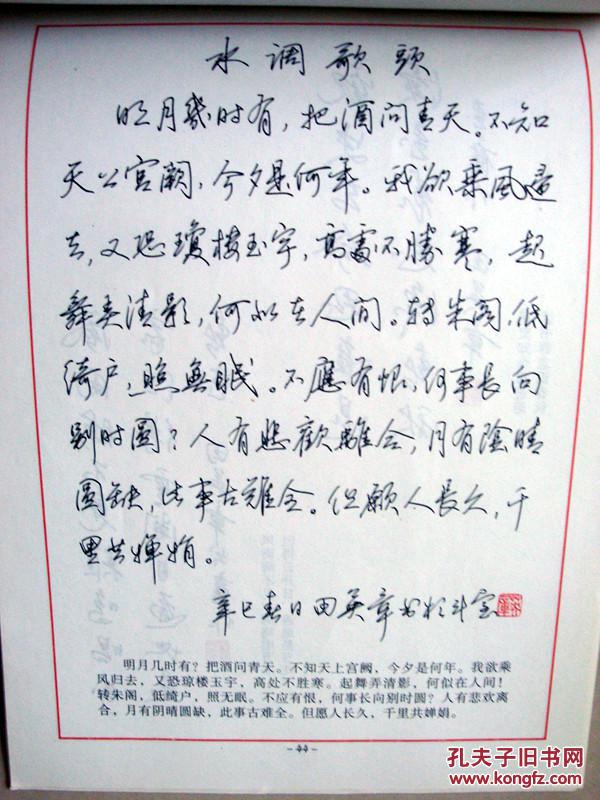 水调歌头
明月幾时有，把酒问青天。不知
天上宫阙，今夕是何年。我欲乘风归
去，又恐瓊楼玉宇，高處不勝寒，起
舞弄清影，何似在人间。转朱阁，低
绮户，照無眠。不應有恨，何事長向
别时圆？人有悲歡離合，月有陰晴
圆缺，此事古難全。但願人長久，千
里共婵娟。
辛巳春日田英章书於斗室
明月几时有？把酒问青天。不知天上宫阙，今夕是何年。我欲乘
风归去，又恐琼楼玉宇，高处不胜寒。起舞弄清影，何似在人间！
转朱阁，低绮户，照无眠。不应有恨，何事长向别时圆？人有悲欢离
合，月有阴晴圆缺，此事古难全。但愿人长久，千里共婵娟。
-44-
孔夫子旧书网
www.kongfz.com